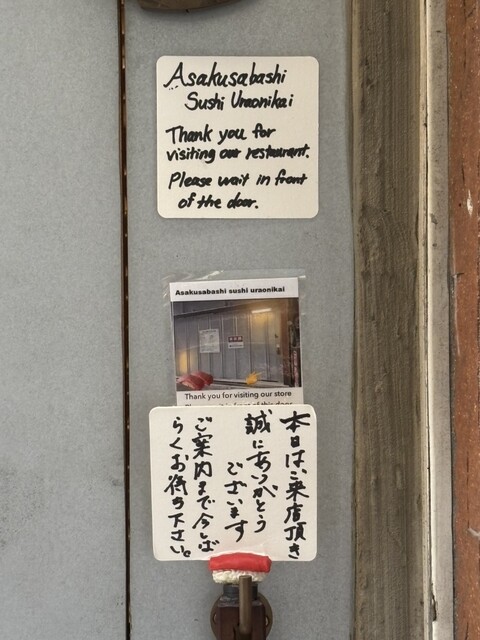 Asakusabashi
Sushi Uraonikai
Thank you for
visiting our restaurant.
Please wait in front
of the door.
Asakusabashi sushi uraonikai
Thank you for visiting our store
本日はご来店頂き
誠にありがとう
ございます
ご案内まで今しば
らくお待ち下さい。